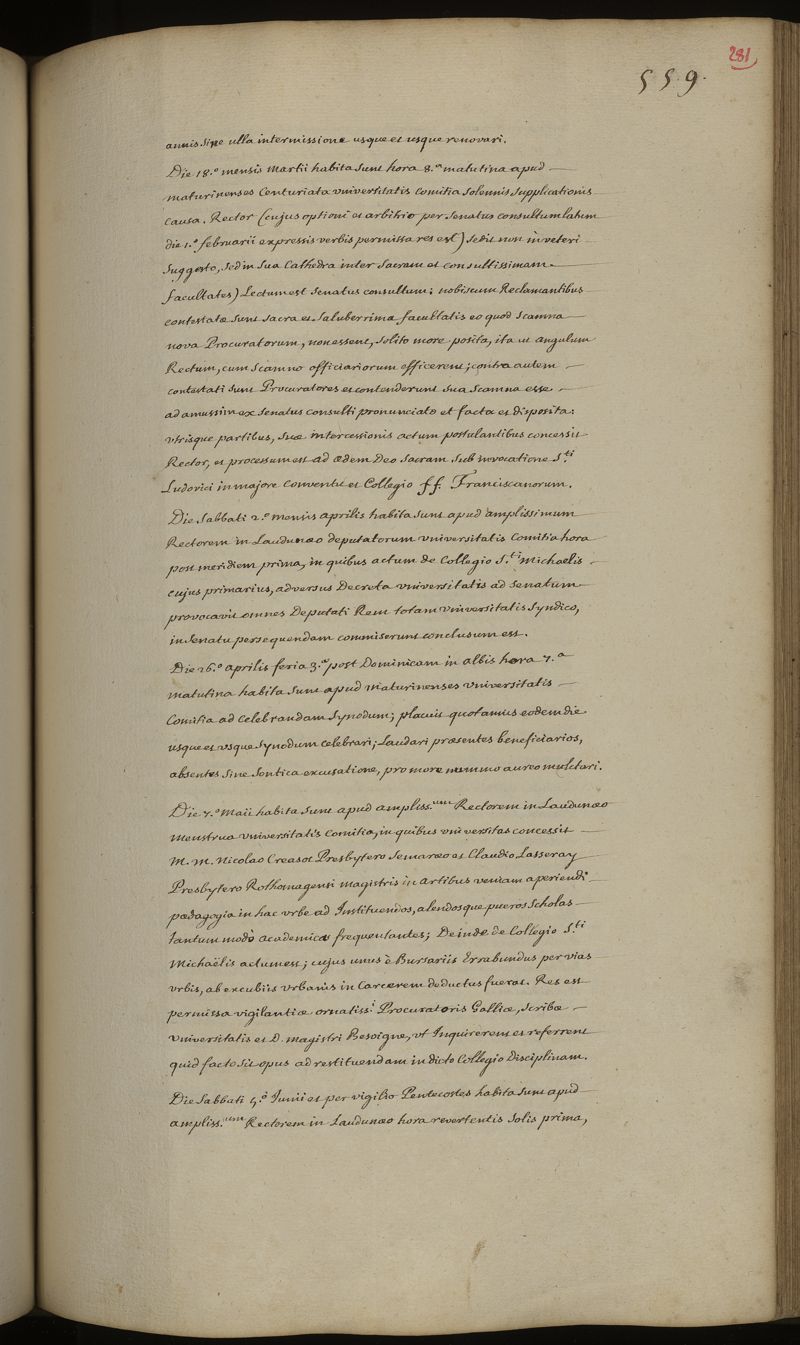 281
559.
annis sine ulla intermissione usque et usque renovari.
Die 18.º mensis Martii habita sunt hora 8.ª matutina apud
maturinenses Centuriata universitatis Comitia Solemnis Supplicationis
causa. Rector (cujus optioni et arbitrio per Senatus consultum latum
die 1.ª februarii expressis verbis permissa res est) sedit non in veteri
suggesto, sed in sua Cathedra inter Sacram et consultissimam
facultates) Lectum est Senatus consultum; nobiscum Reclamantibus
contestatæ sunt sacra et saluberrima facultatis eo quod scamna
nova Procuratorum, non essent, solito more posita, ita ut angulum
Rectum, cum scamno officiariorum efficerent; contra autem
contestati sunt Procuratores et contenderunt sua scamna esse
ad amussim ex Senatus consulti pronunciato et facta et disposita:
utrisque partibus, suæ intercessionis actum postulantibus concessit
Rector, et processum est ad ædem Deo Sacram sub invocatione S.ti
Ludovici in majore conventu et Collegio ff. Franciscanorum.
Die Sabbati 2.º mensis aprilis habita sunt apud amplissimum
Rectorem in Laudunæo deputatorum universitatis Comitia hora
post meridiem prima, in quibus actum de Collegio S.ti Michaelis
cujus primarius, adversus Decreta universitatis ad Senatum
provocavit omnes Deputati Rem totam universitatis Syndico,
in Senatu persequendam commiserunt conclusum est.
Die 26.º aprilis feria 3.ª post Dominicam in albis hora 7.ª
matutina habita sunt apud maturinenses universitatis
Comitia ad celebrandam Synodum; placuit quotannis eodem die
usque et usque Synodum celebrari; Laudari præsentes beneficiarios,
absentes sine sontica excusatione, pro more nummo aureo mulctari.
Die 7.º Maii habita sunt apud ampliss.um Rectorem in Laudunæo
menstrua universitatis Comitia, in quibus universitas concessit
M. M. Nicolao Creasot Presbytero Semaræo et Claudio Lasseray
Presbytero Rothomagensi magistris in artibus veniam aperiendi
pædagogia in hac urbe ad Instituendos, alendosque pueros Scholas
tantum modò academicas frequentantes; Deinde de Collegio S.ti
Michaëlis actum est; cujus unus è Bursariis Errabundus per vias
urbis, ab excubiis urbanis in Carcerem deductus fuerat. Res est
permissa vigilantiæ ornatiss.i Procuratoris Galliæ, Scribæ
universitatis et D. magistri Besoigne, ut Inquirerent et referrent
quid facto sit opus ad restituendam in dicto Collegio Disciplinam.
Die Sabbati 4.º Junii et per vigilio Pentecostes habita sunt apud
ampliss.um Rectorem in Laudunæo hora revertentis solis prima,